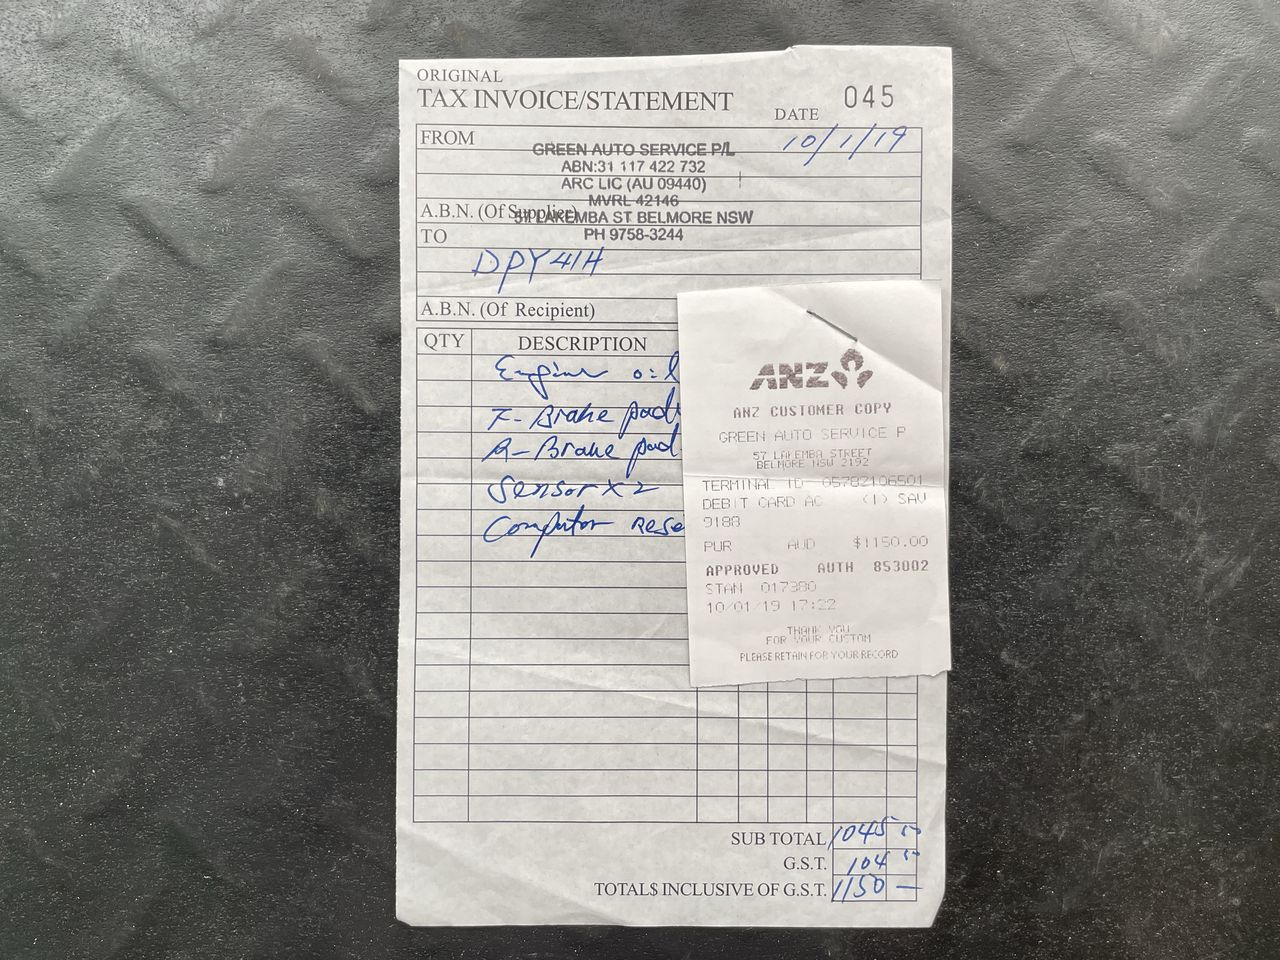 ORIGINAL
TAX INVOICE/STATEMENT
045
DATE
10/1/19
FROM
GREEN AUTO SERVICE P/L
ABN:31 117 422 732
ARC LIC (AU 09440)
MVRL 42146
A.B.N. (Of Supplier)
57 LAKEMBA ST BELMORE NSW
PH 9758-3244
TO
DPY41H
A.B.N. (Of Recipient)
QTY DESCRIPTION
Engine oil
F-Brake pad
R-Brake pad
Sensor x 2
Computor Rese
ANZ
ANZ CUSTOMER COPY
GREEN AUTO SERVICE P
57 LAKEMBA STREET
BELMORE NSW 2192
TERMINAL ID 05782106501
DEBIT CARD AC (1) SAV
9188
PUR AUD $1150.00
APPROVED AUTH 853002
STAN 017380
10/01/19 17:22
THANK YOU
FOR YOUR CUSTOM
PLEASE RETAIN FOR YOUR RECORD
SUB TOTAL 1045 50
G.S.T. 104 50
TOTAL$ INCLUSIVE OF G.S.T. 1150 —